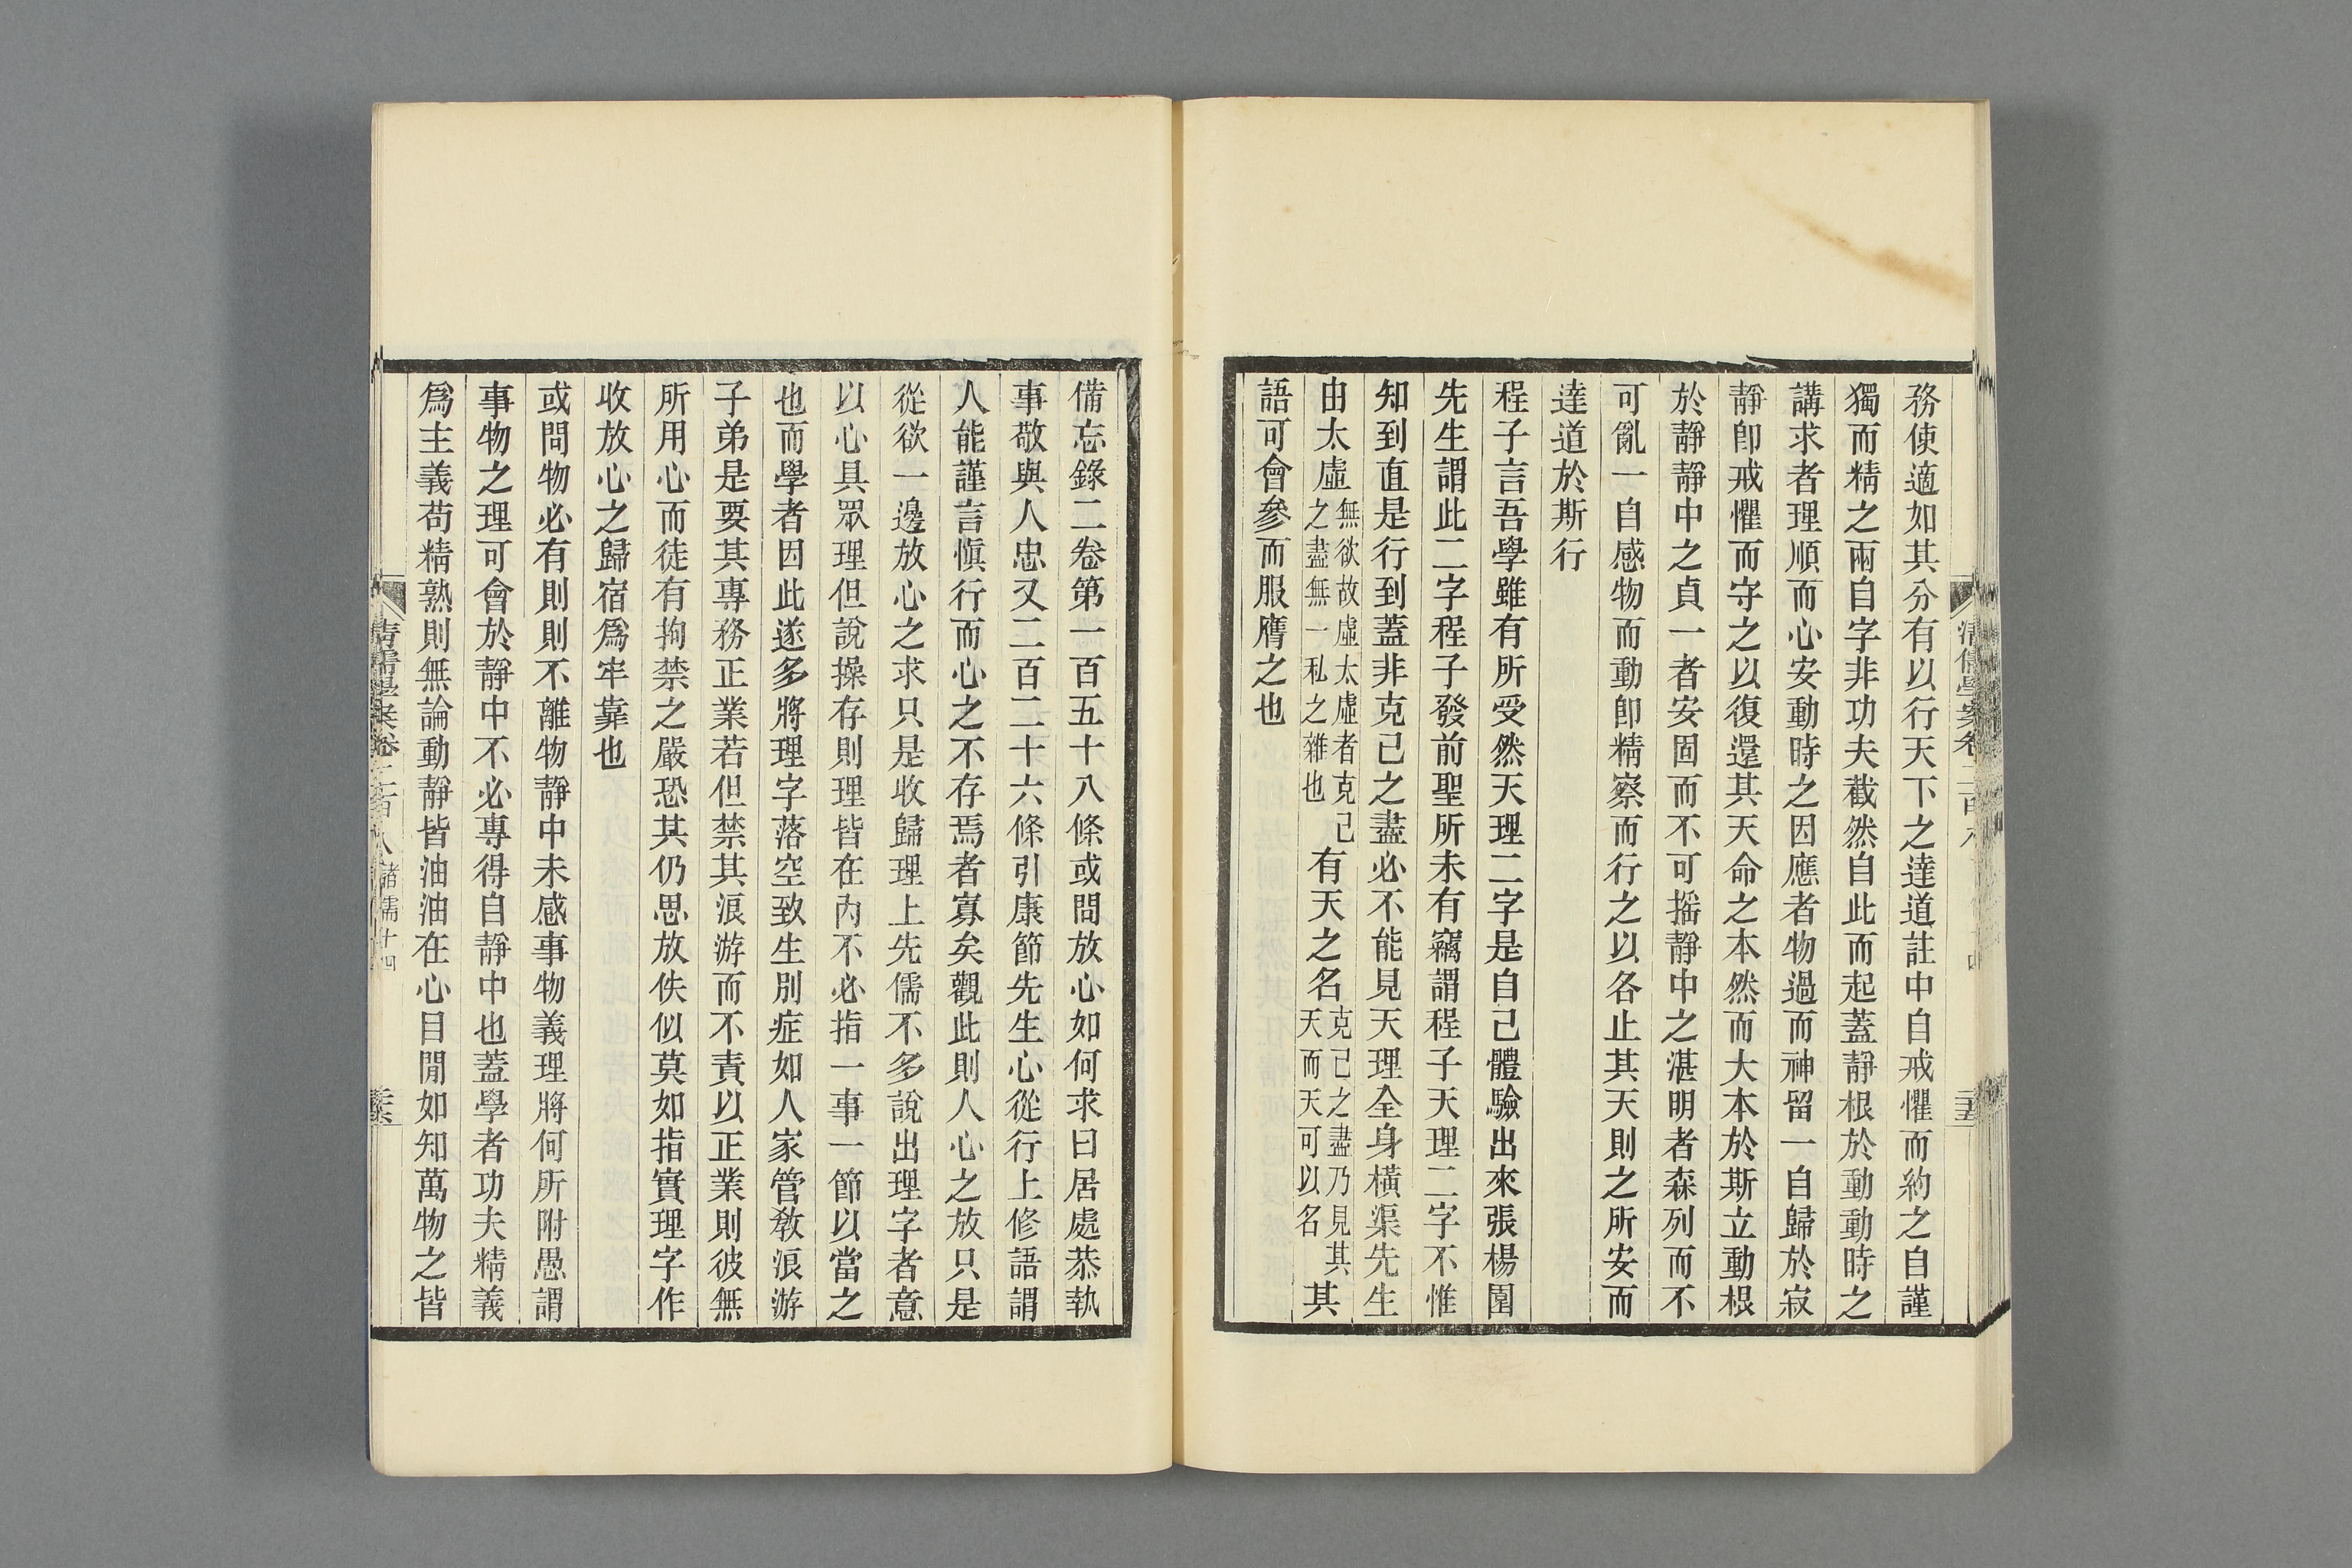 務使適如其分有以行天下之達道註中自戒懼而約之自謹
獨而精之兩自字非功夫截然自此而起蓋靜根於動動時之
講求者理順而心安動時之因應者物過而神留一自歸於寂
靜卽戒懼而守之以復還其天命之本然而大本於斯立動根
於靜靜中之貞一者安固而不可搖靜中之湛明者森列而不
可亂一自感物而動卽精察而行之以各止其天則之所安而
達道於斯行
程子言吾學雖有所受然天理二字是自己體驗出來張楊園
先生謂此二字程子發前聖所未有竊謂程子天理二字不惟
知到直是行到蓋非克己之盡必不能見天理全身橫渠先生
由太虛無欲故虛太虛者克己之盡無一私之雜也有天之名克己之盡乃見其天而天可以名其
語可會參而服膺之也
備忘錄二卷第一百五十八條或問放心如何求曰居處恭執
事敬與人忠又二百二十六條引康節先生心從行上修語謂
人能謹言愼行而心之不存焉者寡矣觀此則人心之放只是
從欲一邊放心之求只是收歸理上先儒不多說出理字者意
以心具眾理但說操存則理皆在內不必指一事一節以當之
也而學者因此遂多將理字落空致生別症如人家管教浪游
子弟是要其專務正業若但禁其浪游而不責以正業則彼無
所用心而徒有拘禁之嚴恐其仍思放佚似莫如指實理字作
收放心之歸宿爲牢靠也
或問物必有則則不離物靜中未感事物義理將何所附愚謂
事物之理可會於靜中不必專得自靜中也蓋學者功夫精義
爲主義苟精熟則無論動靜皆油油在心目閒如知萬物之皆
清儒學案卷二百八 諸儒十四